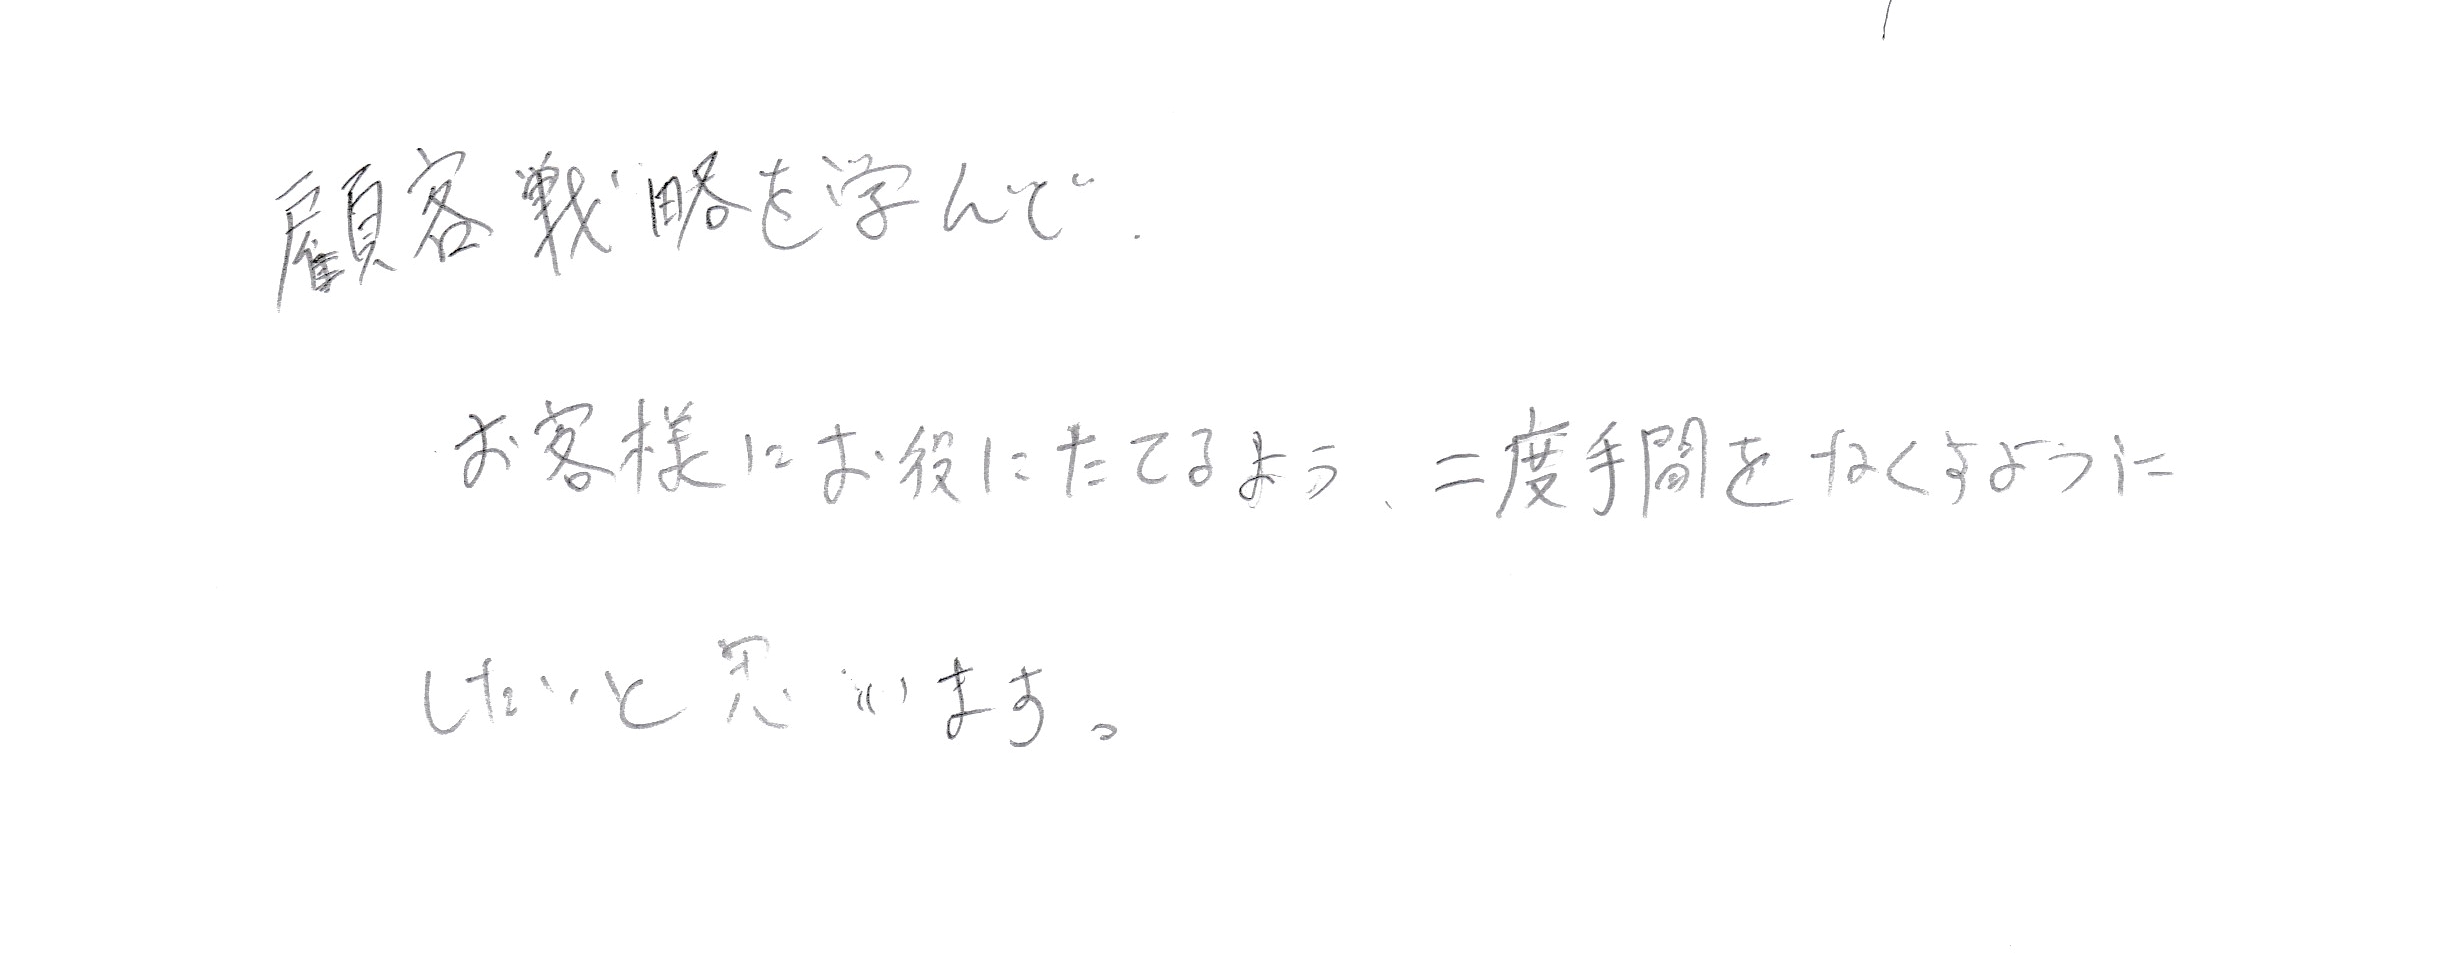 顧客戦略を学んで.
お客様にお役にたてるよう、二度手間をなくすように
したいと思います。